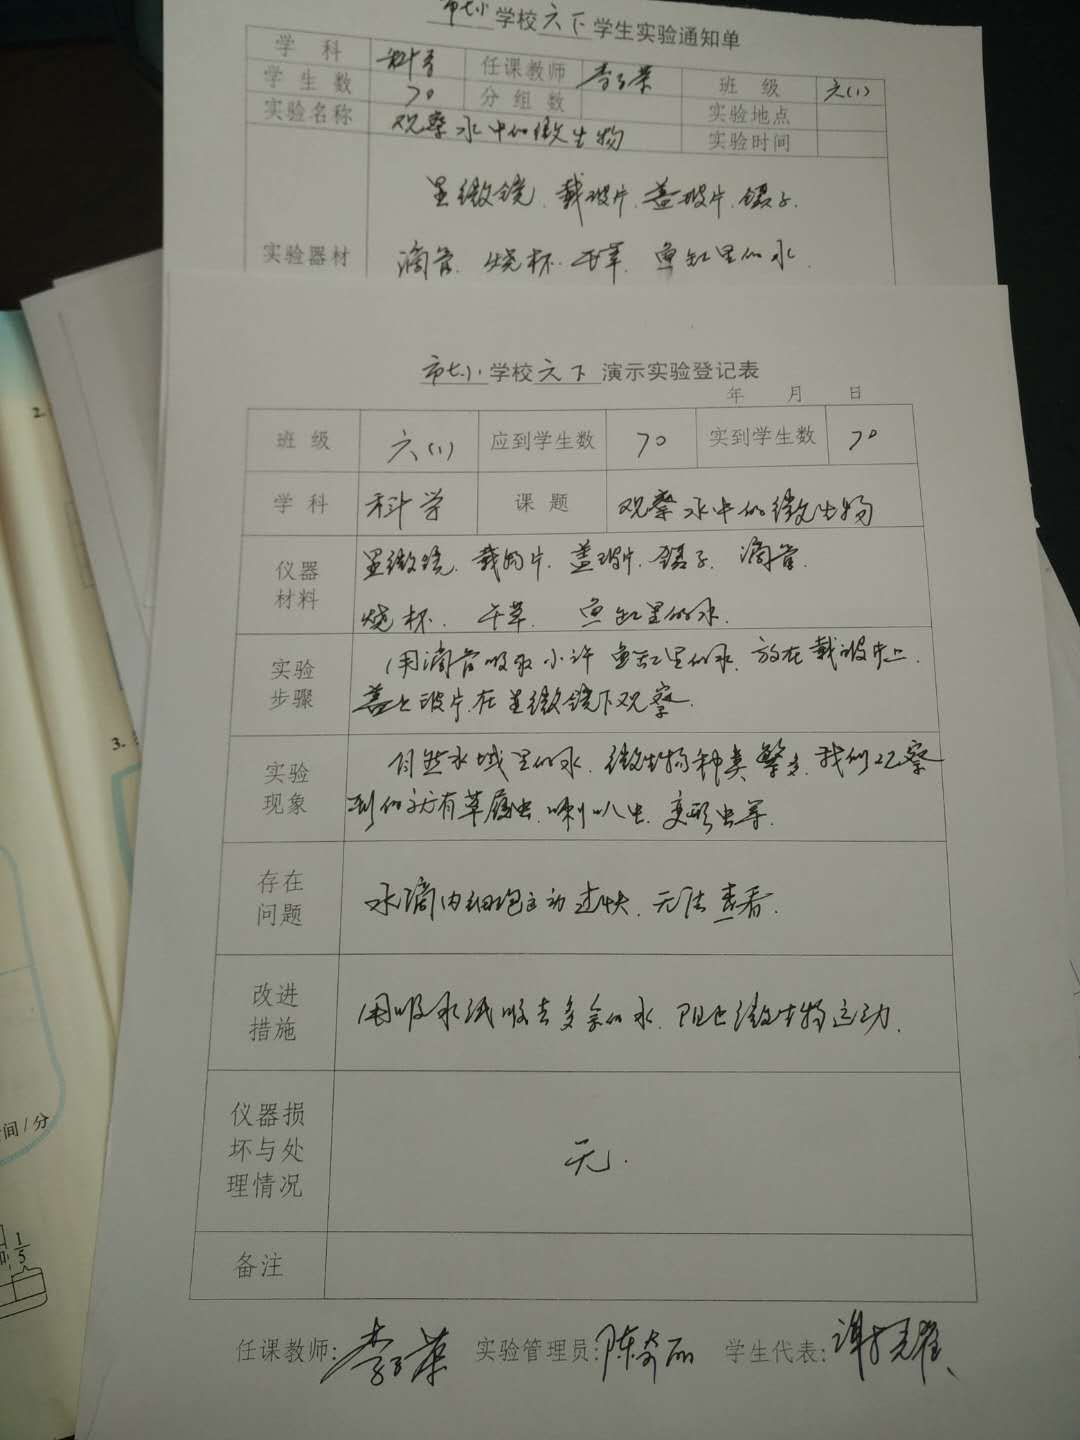 市七小学校六下学生实验通知单
学 科 科学 任课教师 李子荣 班 级 六(1)
学 生 数 70 分 组 数 实验地点
实验名称 观察水中的微生物 实验时间
显微镜、载玻片、盖玻片、镊子、
实验器材 滴管、烧杯、干草、鱼缸里的水、
市七小学校六下演示实验登记表
年 月 日
班 级 六(1) 应到学生数 70 实到学生数 70
学 科 科学 课 题 观察水中的微生物
仪器 显微镜、载物片、盖玻片、镊子、滴管、
材料 烧杯、干草、鱼缸里的水、
实验 用滴管吸取小许鱼缸里的水、放在载玻片上、
步骤 盖上玻片、在显微镜下观察、
实验 自然水域里的水、微生物种类繁多、我们观察
现象 到的就有草履虫、喇叭虫、变形虫等、
存在
问题 水滴内细胞运动过快、无法查看、
改进
措施 用吸水纸吸去多余的水、阻止微生物运动、
仪器损
坏与处 无.
理情况
备注
任课教师: 李子荣 实验管理员: 陈奇丽 学生代表:
2.
3.
间/分
1
5